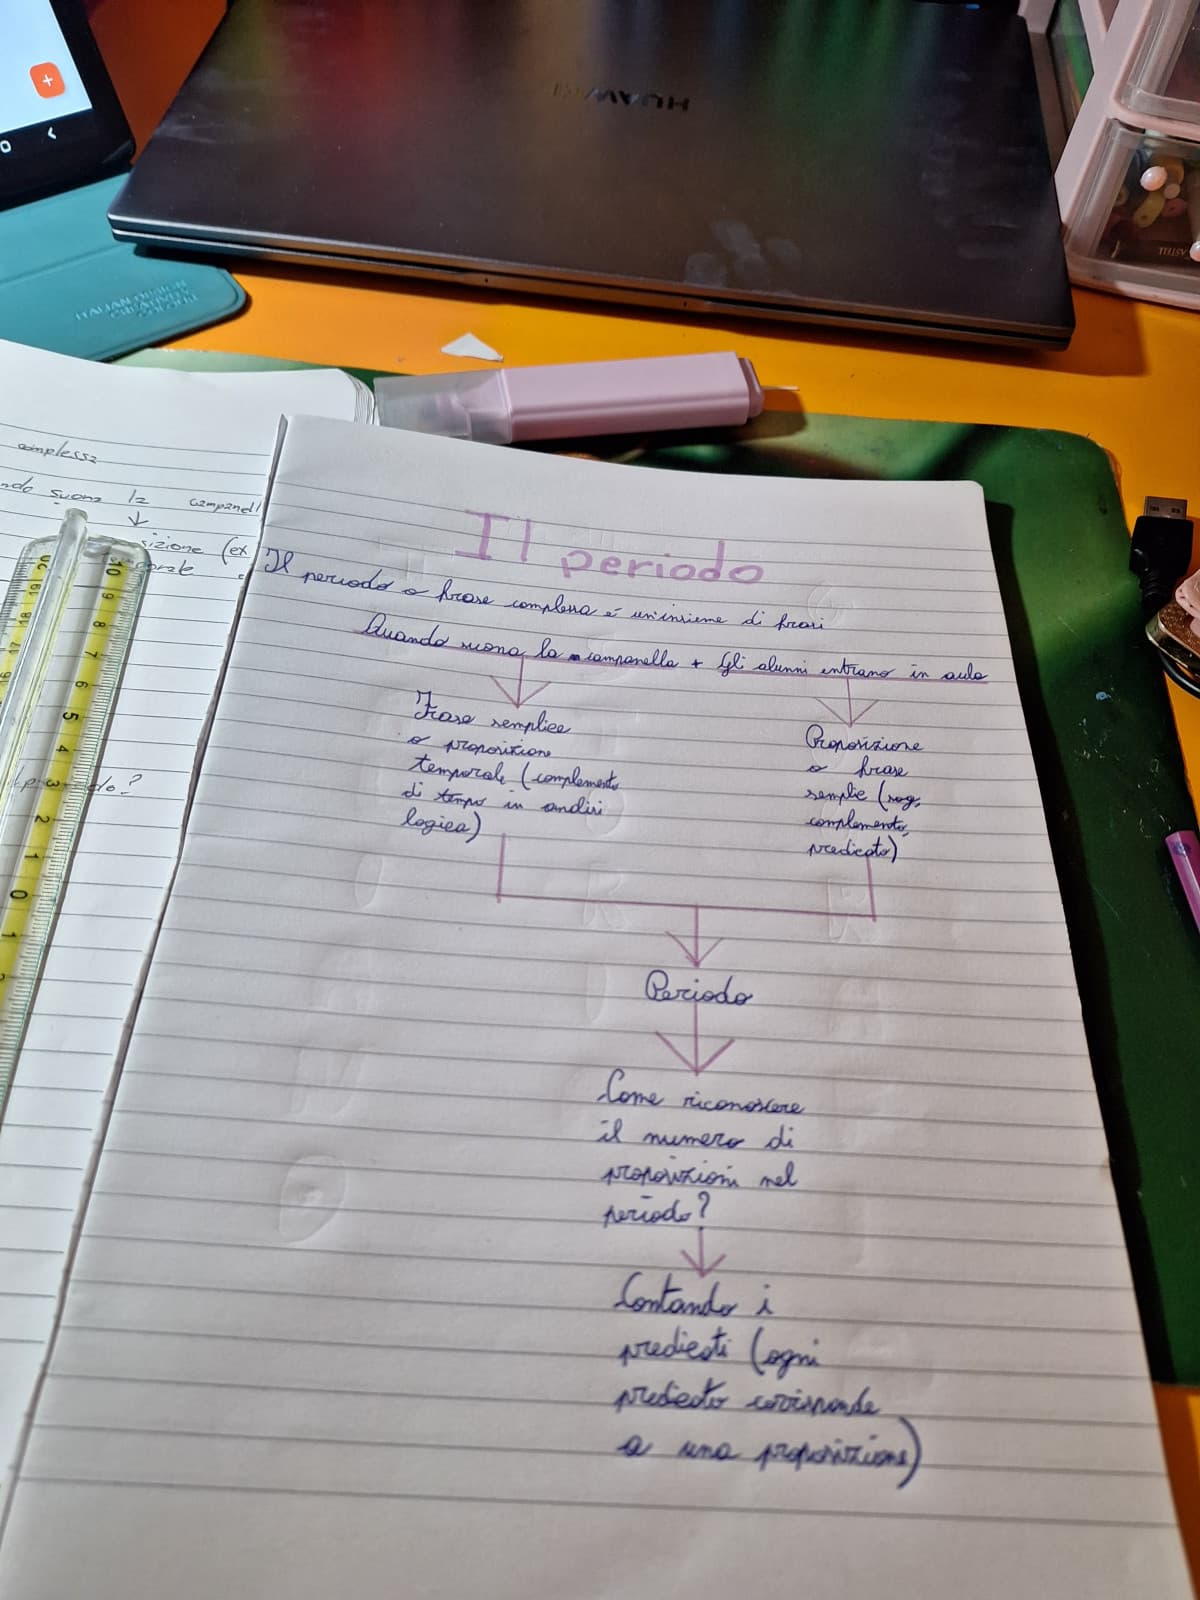 HUAWEI
ITALIAN DESIGN
CREATIVITY
complessa
suona la campanell
sizione (ex
orale
do?
Il periodo
Il periodo o frase complessa è un'insieme di frasi
Quando suona la campanella + Gli alunni entrano in aula
Frase semplice
o proposizione
temporale (complemento
di tempo in analisi
logica)
Proposizione
o frase
semplie (sog,
complemento,
predicato)
Periodo
Come riconoscere
il numero di
proposizioni nel
periodo?
Contando i
predicati (ogni
predicato corrisponde
a una proposizione)
10
9
8
7
6
5
4
3
2
1
0
1